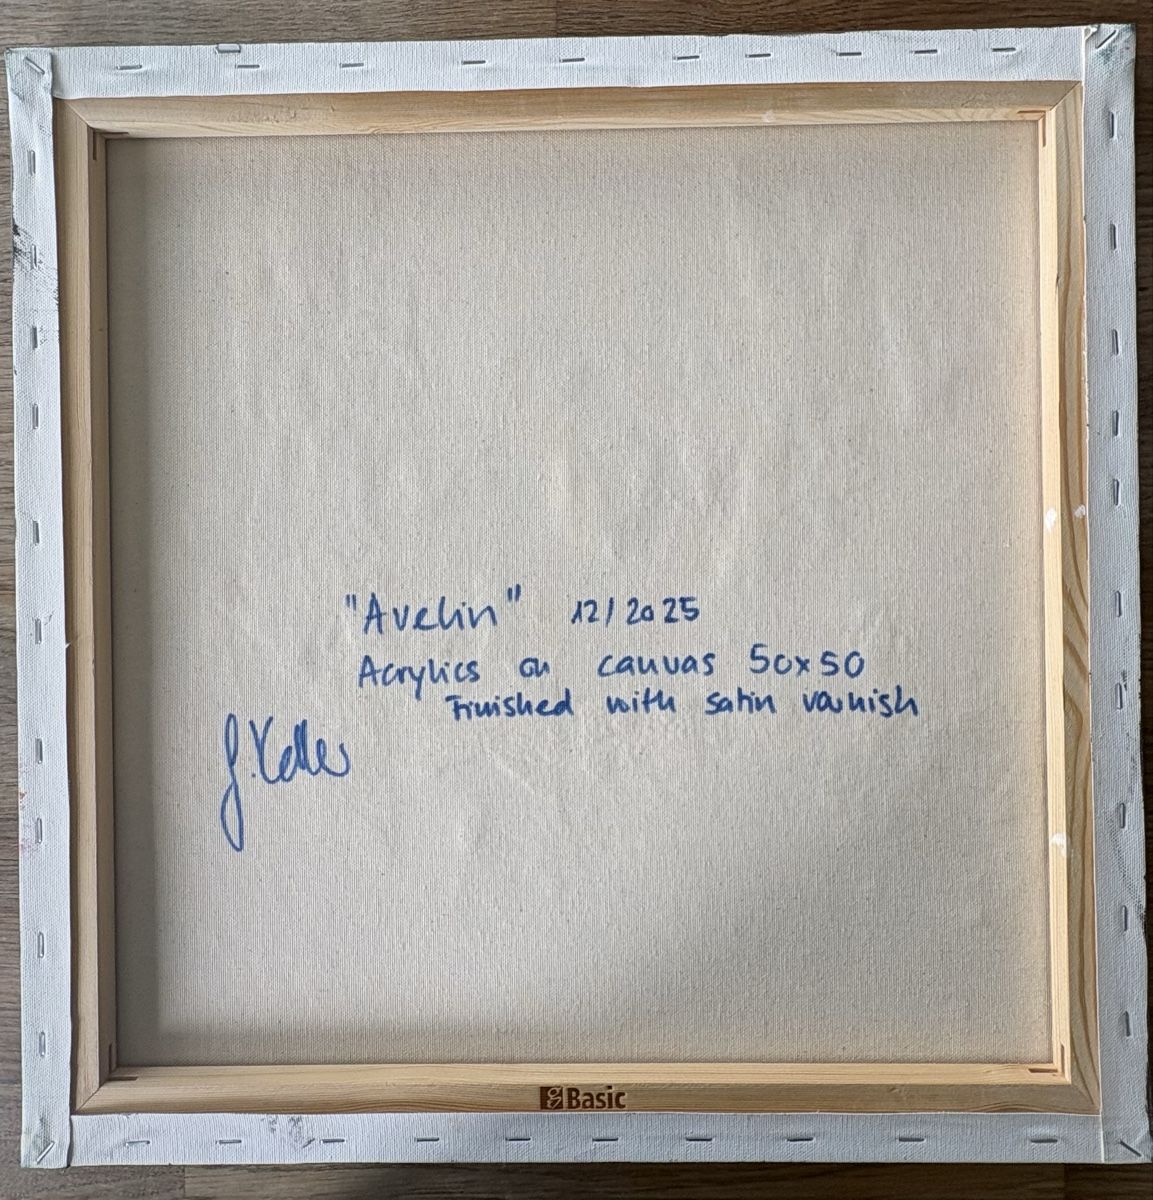 "Avelin" 12/2025
Acrylics on canvas 50x50
Finished with satin varnish
Basic